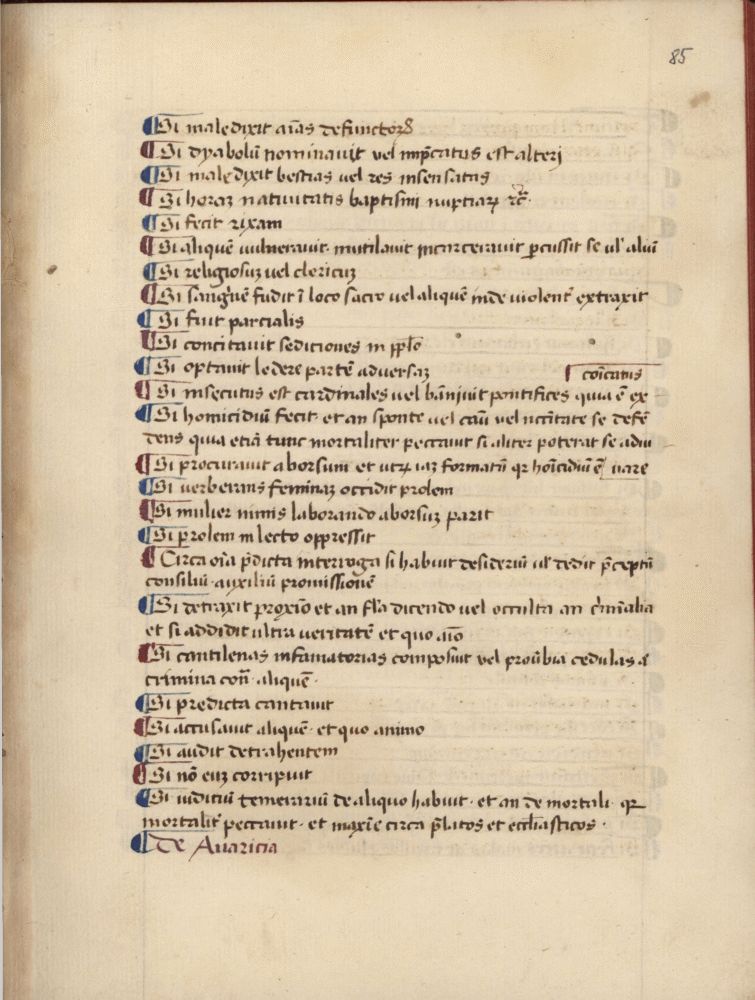 85
Si maledixit aĩas defunctoꝝ
Si dyabolũ nominauit vel imp̃catus est alterj
Si maledixit bestias uel res insensatas
Si horaꝫ natiuitatis baptismi nuptiaꝝ ⁊c̃.
Si fecit rixam
Si aliquẽ uulnerauit· mutilauit incarcerauit ꝑcussit se ul' aliũ
Si religiosuꝫ uel clericuꝫ
Si sang'uẽ fudit ĩ loco sacro uel aliquẽ inde uiolent̃ extraxit
Si fuit partialis
Si concitauit seditiones in pp̃lo
Si optauit ledere partẽ aduersaꝫ
Si insecutus est cardinales uel bãnjuit pontifices quia ẽ ex
coĩcatus
Si homicidiũ fecit· et an sponte uel casũ vel nc̃c̃itate se defẽ
dens quia etiã tunc mortaliter peccauit si aliter poterat se adiu
uare
Si procurauit aborsum et utꝝ iaꝫ formatũ qꝛ hoĩcidiũ ẽ
Si uerberans feminaꝫ occidit prolem
Si mulier nimis laborando aborsuꝫ parit
Si ꝓlem in lecto oppressit
Circa oĩa p̃dicta interroga si habuit desideriũ ul' dedit p̃ceptũ
consiliũ· auxiliũ promissionẽ
Si detraxit proxiõ et an fl̃a dicendo uel occulta an c̃mĩalia
et si addidit ultra ueritatẽ et quo aĩo
Si cantilenas infamatorias composuit vel prouũbia cedulas ⁊
crimina con̄· aliquẽ·
Si predicta cantauit
Si accusauit aliquẽ· et quo animo
Si audit detrahentem
Si nõ euꝫ corripuit
Si iuditiũ temerariũ de aliquo habuit· et an de mortali· qꝛ
mortalit̃ peccauit· et maxĩe circa p̃latos et eccl̃iasticos·
De Auaricia